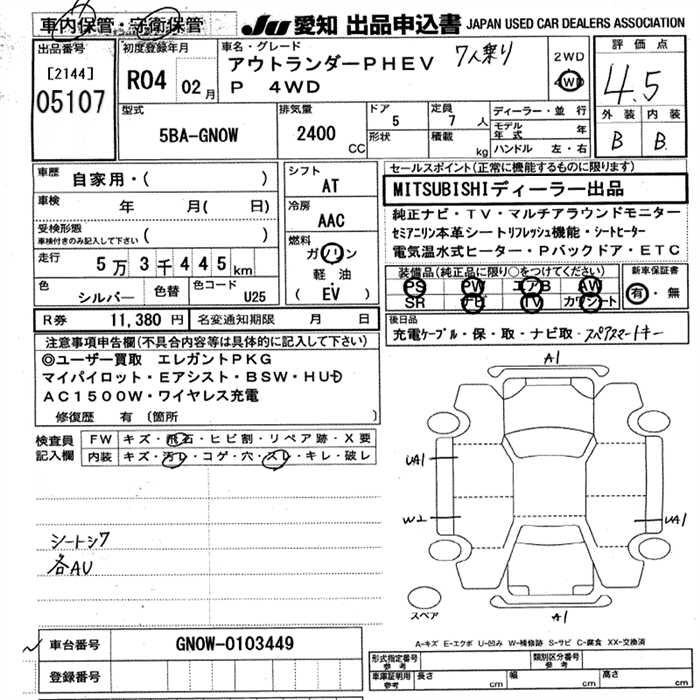 車内保管・守衛保管
JU 愛知 出品申込書 JAPAN USED CAR DEALERS ASSOCIATION
出品番号
[2144]
05107
初度登録年月
R04 02月
車名・グレード
アウトランダーPHEV 7人乗り
P 4WD
2WD
4WD
評価点
4.5
外装 内装
B B
型式
5BA-GN0W
排気量
2400 CC
ドア
5
形状
定員
7 人
積載
kg
ディーラー・並行
モデル年式 年
ハンドル 左・右
車歴
自家用・( )
車検
年 月( 日)
受検形態
車検付きのみ記入して下さい ( )
走行
5万3千445km
色
シルバー
色替
色コード
U25
シフト
AT
冷房
AAC
燃料
ガソリン
軽油
( EV )
R券 11,380 円
名変通知期限 月 日
セールスポイント(正常に機能するものに限ります)
MITSUBISHIディーラー出品
純正ナビ・TV・マルチアラウンドモニター
セミアニリン本革シートリフレッシュ機能・シートヒーター
電気温水式ヒーター・Pバックドア・ETC
装備品(純正品に限り○をつけてください)
PS PW エアB AW
SR ナビ TV カワシート
新車保証書
有・無
後日品
充電ケーブル・保・取・ナビ取・スペアスマートキー
注意事項申告欄(不具合内容等は具体的に記入して下さい)
◎ユーザー買取 エレガントPKG
マイパイロット・Eアシスト・BSW・HUD
AC1500W・ワイヤレス充電
修復歴 有 (箇所
検査員記入欄
FW キズ・飛石・ヒビ割・リペア跡・X要
内装 キズ・汚レ・コゲ・穴・スレ・キレ・破レ
シートシワ
各AU
A1
UA1
W2
UA1
A1
スペア
A-キズ E-エクボ U-凹み W-補修跡 S-サビ C-腐食 XX-交換済
車台番号 GN0W-0103449
登録番号
形式指定番号 参考
類別区分番号 参考
車庫証明用 参考
長さ cm
幅 cm
高さ cm